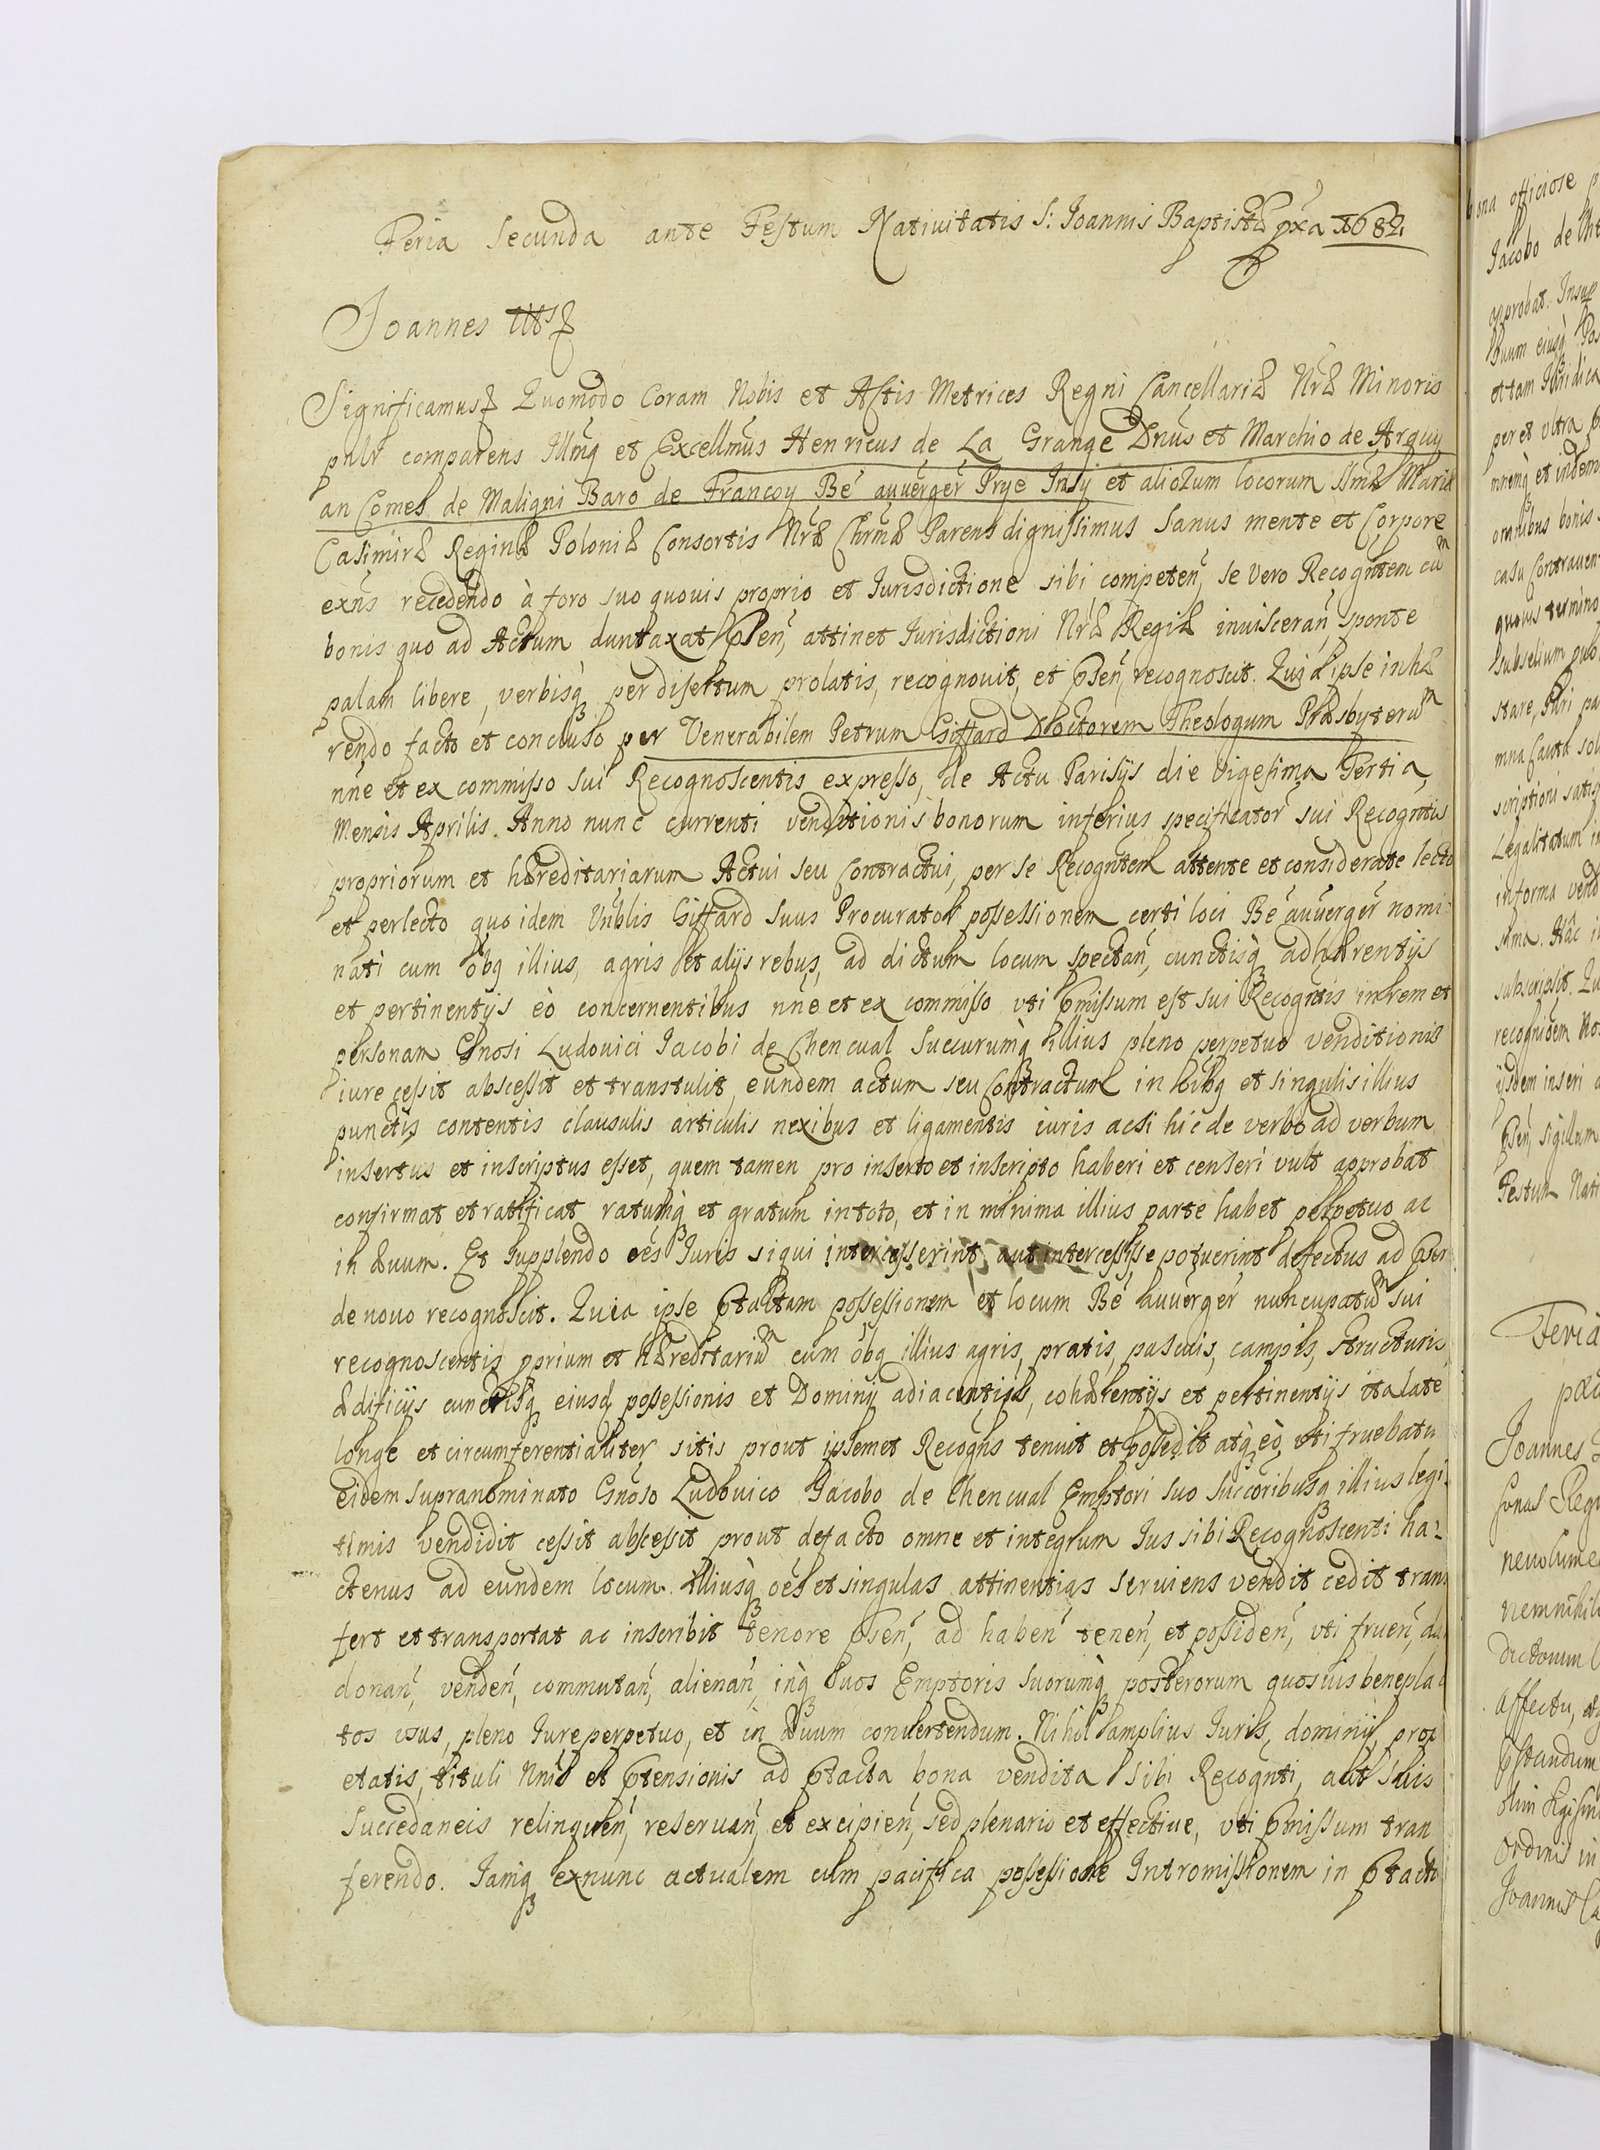 Feria Secunda ante Festum Natiuitatis S: Joannis Baptistæ pxa 1682.
Joannes IIIs
Significamus Quomodo Coram Nobis et Actis Metrices Regni Cancellariæ Nræ Minoris
pnlr comparens Illmq et Excellmus Henricus de La Grange Dnus et Marchio de Arquy
an Comes de Maligni Baro de Francoy Be auuerger Prye Insy et aliorum locorum Smæ Mariæ
Casimiræ Reginæ Poloniæ Consortis Nræ Chrmæ Parens dignissimus Sanus mente et Corpore
exns recedendo à foro suo quouis proprio et Jurisdictione sibi competen, se vero Recogntem cum
bonis quo ad Actum duntaxat pñsen, attinet Jurisdictioni Nræ Regiæ inuisceran, sponte
palam libere, verbisq per disertum prolatis, recognouit, et pñsen, recognoscit. Quia ipse inhæ
rendo facto et concluso per Venerabilem Petrum Giffard Doctorem Theologum Præsbyterum
nne et ex commisso sui Recognoscentis expresso, de Actu Parisijs die Vigesima Tertia,
Mensis Aprilis. Anno nunc currenti venditionis bonorum inferius specificator sui Recogntis
propriorum et hæreditariarum Actui seu Contractui, per se Recogntem attente et considerate lecto
et perlecto quo idem Vnblis Giffard Suus Procurator possessionem certi loci Be auuerger nomi-
nati cum obq illius, agris et alijs rebus, ad dictum locum spectan, cunctisq adhærentijs
et pertinentijs eò concernentibus nne et ex commisso vti pmissum est sui Recogntis in rem et
personam Gnosi Ludouici Jacobi de Chencual Succurumq illius pleno perpetuo venditionis
iure cessit abscessit et transtulit, eundem actum seu Contractum in oibq et singulis illius
punctis contentis clausulis articulis nexibus et ligamentis iuris acsi hic de verbo ad verbum
insertus et inscriptus esset, quem tamen pro inserto et inscripto haberi et censeri vult approbat
confirmat et ratificat ratumq et gratum in toto, et in minima illius parte habet perpetuo ac
in æuum. Et supplendo oes Juris siqui intercesserint aut intercessisse potuerint defectus ad pser
de nouo recognoscit. Quia ipse ptactam possessionem et locum Be auuerger nuncupatum sui
recognoscentis pprium et hæreditarium cum obq illius agris, pratis, pascuis, campis, structuris,
ædificijs cunctisq eiusd possessionis et Dominij adiacentijs, cohærentijs et pertinentijs ita late
longe et circumferentialiter sitis prout ipsemet Recogns tenuit et possedit atq eò vti fruebatu
eidem supranominato Gnoso Ludouico Jacobo de Chencual Emptori suo Succoribusq illius legi-
timis vendidit cessit abscessit prout de facto omne et integrum Jus sibi Recognoscenti ha-
ctenus ad eundem locum illiusq oes et singulas attinentias seruiens vendit cedit trans
fert et transportat ac inscribit tenore pñsen, ad haben tenen, et possiden, vti fruen, da
donan, venden, commutan, alienan, inq suos Emptoris suorumq posterorum quosuis beneplaci
tos vsus, pleno Jure perpetuo, et in æuum conuertendum. Nihil amplius Juris, dominij, prop
etatis, tituli nnis et ptensionis ad ptacta bona vendita sibi Recognti, aut suis
Succedaneis relinquen, reseruan, et excipien, sed plenarie et effectiue, vti pmissum trans
ferendo. Jamq exnunc actualem cum pacifica possessione Intromissionem in ptacto